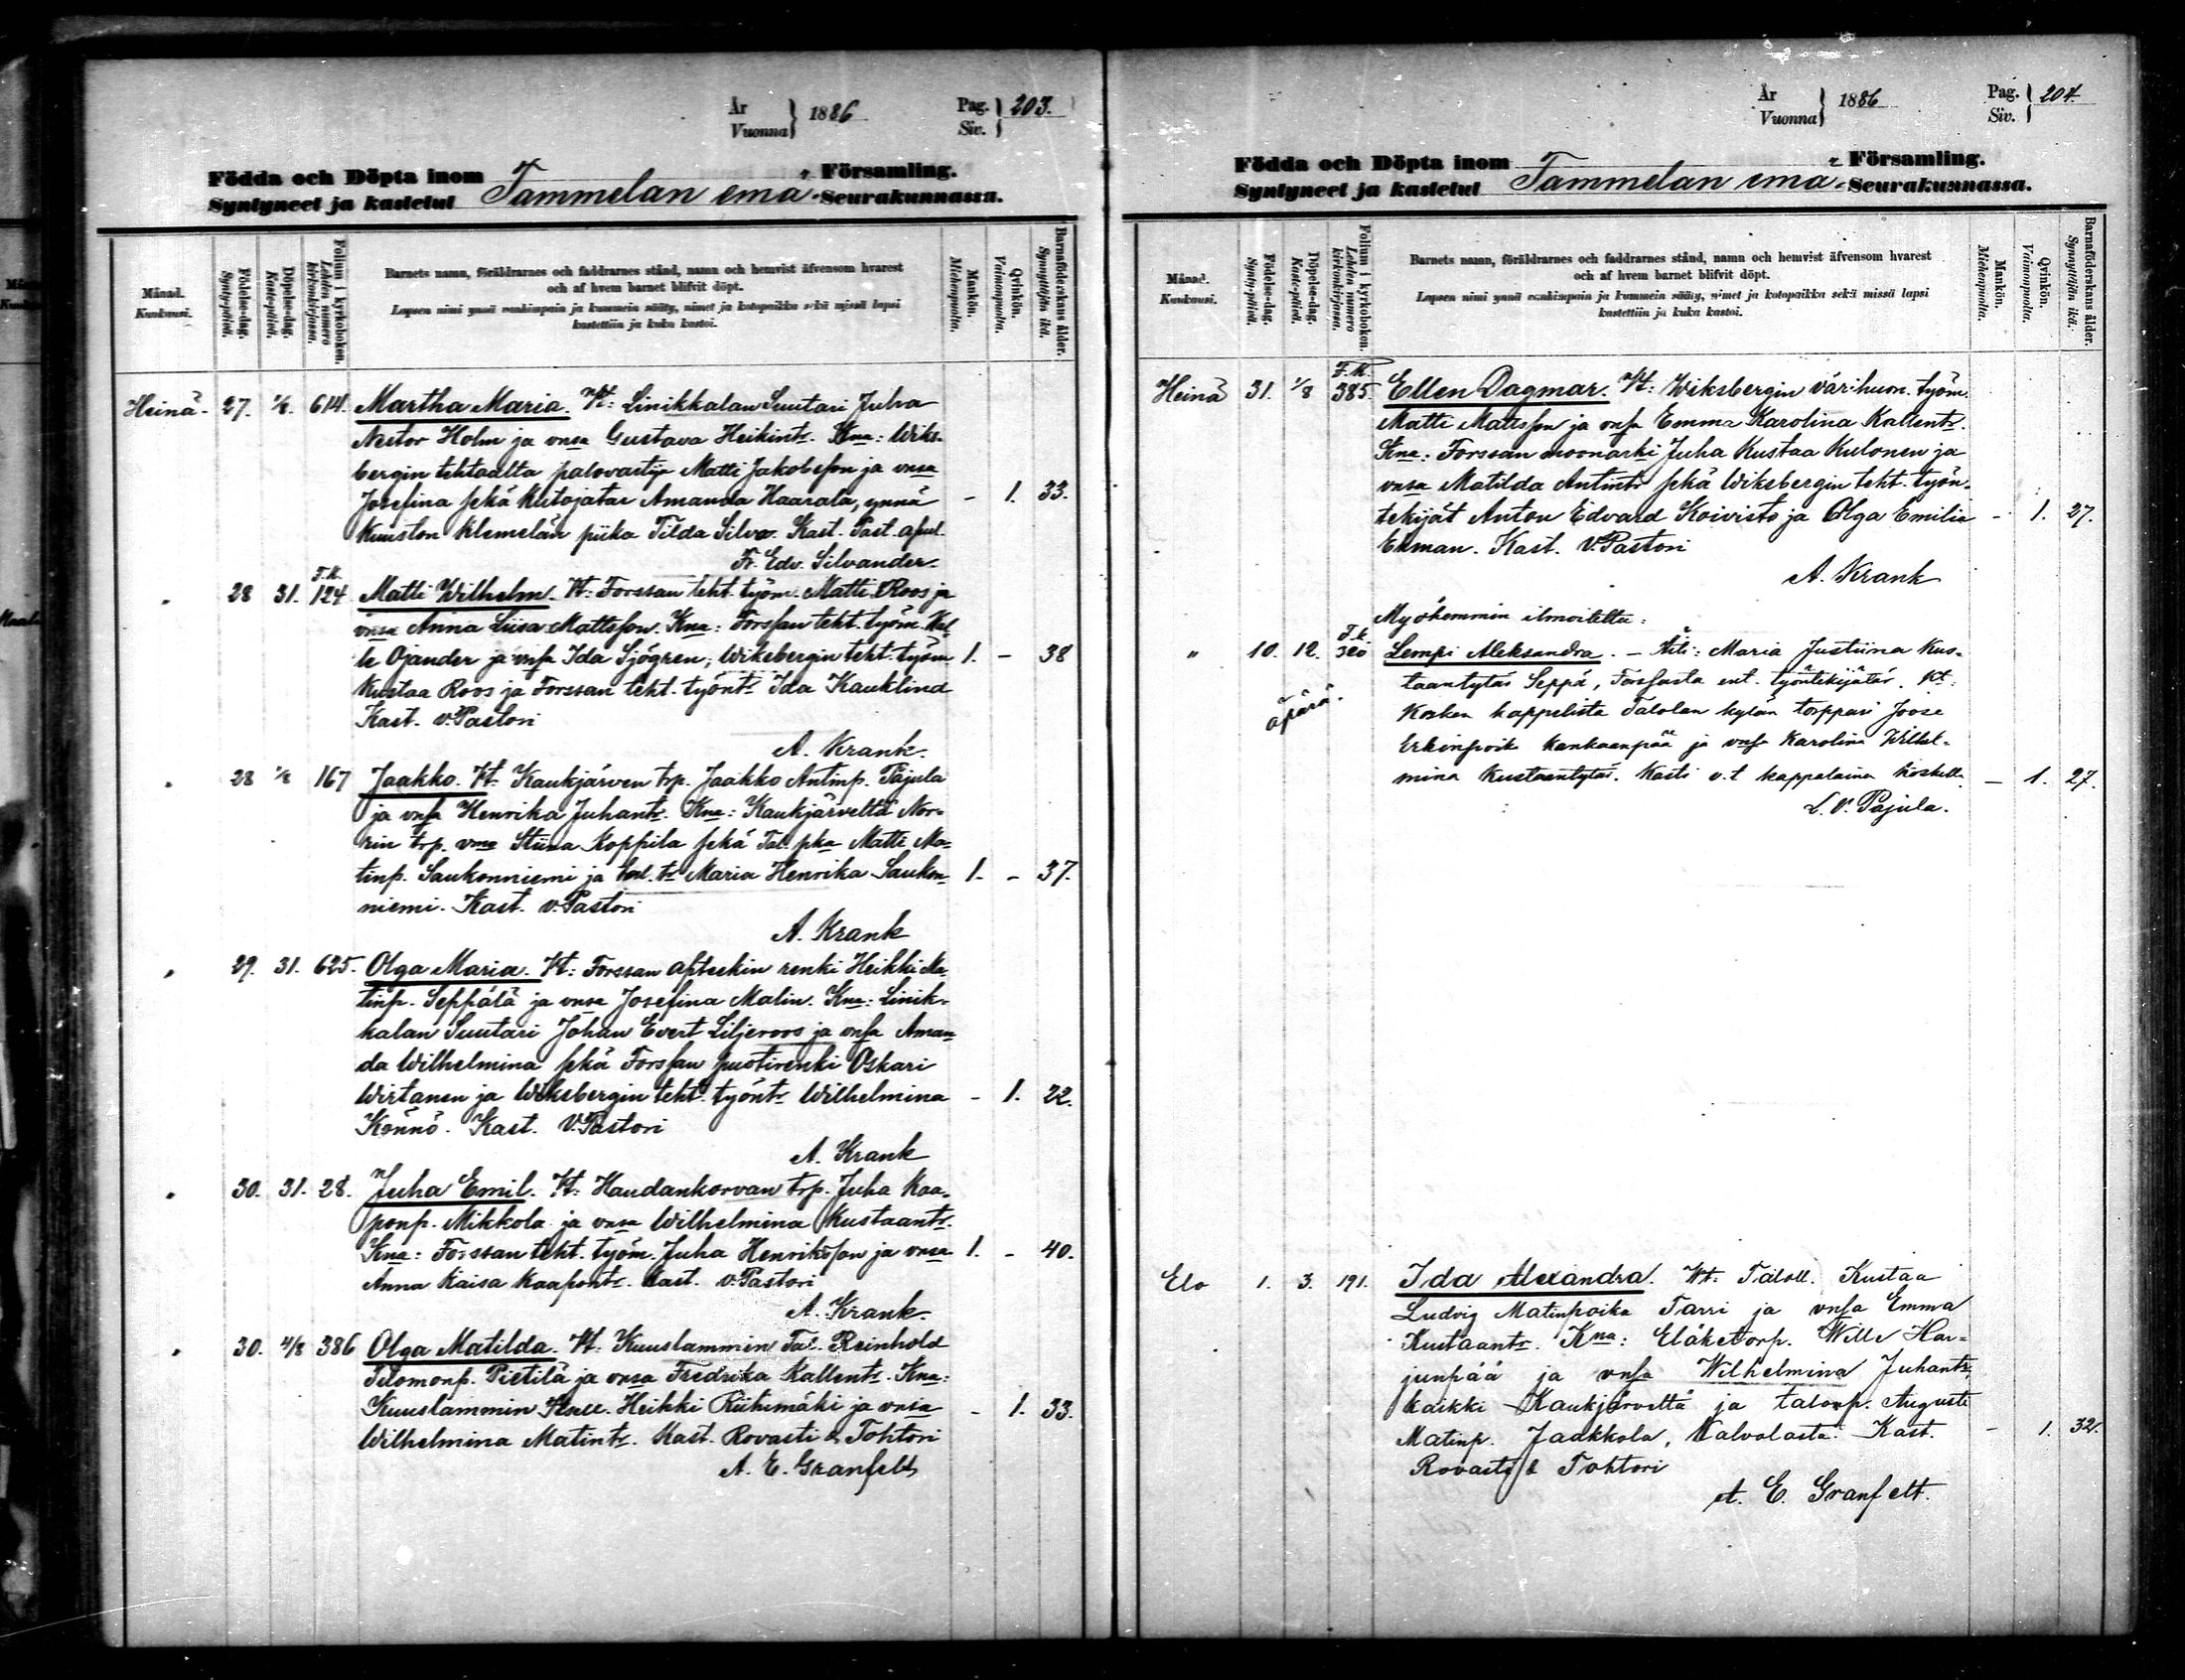 År
Vuonna } 1886
Pag.
Siv. } 203.
Födda och Döpta inom
Syntyneet ja kastetut Tammelan emä- Församling.
Seurakunnassa.
Månad.
Kuukausi.
Födelse-dag.
Synty-päivä.
Döpelse-dag.
Kaste-päivä.
Folium i kyrkoboken.
Lehden numero kirkonkirjassa.
Barnets namn, föräldrarnes och faddrarnes stånd, namn och hemvist äfvensom hvarest
och af hvem barnet blifvit döpt.
Lapsen nimi ynnä vanhimpain ja kummein sääty, nimet ja kotopaikka sekä missä lapsi
kastettiin ja kuka kastoi.
Mankön.
Miehenpuolta.
Qvinkön.
Vaimonpuolta.
Barnaföderskans ålder.
Synnyttäjän ikä.
Heinä- 27. 1/8. 614. Martha Maria. Vt: Linikkalan Suutari Juha
Nestor Holm ja vnsa Gustava Heikintr. Kna: Wiks-
bergin tehtaalta palovartija Matti Jakobsson ja vnsa
Josefina sekä Kutojatar Amanda Haarala, ynnä - 1. 33.
Kuuston Klemelän piika Tilda Silva. Kast. Past. apul.
Fr. Edv. Silvander.
" 28 31. F.K. 124 Matti Wilhelm. Vt: Forssan teht. työm. Matti Roos ja
vnsa Anna Liisa Mattsson. Kna: Forssan teht. työm. Kal-
le Ojander ja vnsa Ida Sjögren, Wiksbergin teht. työm 1. - 38
Kustaa Roos ja Forssan teht. työntr Ida Kauklind
Kast. v. Pastori
A. Krank.
" 28 1/8 167 Jaakko. Vt: Kaukjärven trp. Jaakko Antinp. Pajula
ja vnsa Henrika Juhantr. Kna: Kaukjärveltä Nor-
rin trp. vmo Stiina Koppila sekä Tal. pka Matti Ma-
tinp. Saukonniemi ja tal. tr Maria Henrika Saukon- 1. - 37.
niemi. Kast. v. Pastori
A. Krank
" 29. 31. 625. Olga Maria. Vt: Forssan apteekin renki Heikki Ma-
tinp. Seppälä ja vnsa Josefina Malin. Kna: Linik-
kalan Suutari Johan Evert Liljeroos ja vnsa Aman-
da Wilhelmina sekä Forssan puotirenki Oskari
Wirtanen ja Wiksbergin teht. työntr Wilhelmina - 1. 22.
Könnö. Kast. V. Pastori
A. Krank
" 30. 31. 28. Juha Emil. Vt: Haudankorvan trp. Juha Kaa-
ponp. Mikkola ja vnsa Wilhelmina Kustaantr.
Kna: Forssan teht. työm. Juha Henriksson ja vnsa 1. - 40.
Anna Kaisa Kaapontr. Kast. v. Pastori
A. Krank.
" 30. 4/8 386 Olga Matilda. Vt: Kuuslammin Tal. Reinhold
Salomonp. Pietilä ja vnsa Fredrika Kallentr. Kna:
Kuuslammin Heikki Riihimäki ja vnsa - 1. 33.
Wilhelmina Matintr. Kast. Rovasti & Tohtori
A. E. Granfelt
År
Vuonna } 1886
Pag.
Siv. } 204.
Födda och Döpta inom
Syntyneet ja kastetut Tammelan emä- Församling.
Seurakunnassa.
Månad.
Kuukausi.
Födelse-dag.
Synty-päivä.
Döpelse-dag.
Kaste-päivä.
Folium i kyrkoboken.
Lehden numero kirkonkirjassa.
Barnets namn, föräldrarnes och faddrarnes stånd, namn och hemvist äfvensom hvarest
och af hvem barnet blifvit döpt.
Lapsen nimi ynnä vanhimpain ja kummein sääty, nimet ja kotopaikka sekä missä lapsi
kastettiin ja kuka kastoi.
Mankön.
Miehenpuolta.
Qvinkön.
Vaimonpuolta.
Barnaföderskans ålder.
Synnyttäjän ikä.
Heinä 31. 1/8 F.K. 385. Ellen Dagmar. Vt: Wiksbergin värihuon. työm.
Matti Mattsson ja vnsa Emma Karolina Kallentr.
Kna: Forssan moonarki Juha Kustaa Kulonen ja
vnsa Matilda Antintr sekä Wiksbergin teht. työn-
tekijät Anton Edvard Koivisto ja Olga Emilia - 1. 27.
Ekman. Kast. V. Pastori
A. Krank
Myöhemmin ilmoitettu:
" 10. 12. F.k. 320 Lempi Aleksandra. - Äiti: Maria Justiina Kus-
taantytär Seppä, Forssasta ent. työntekijätär. Kt:
äpärä.
Kosken kappelista Talolan kylän torppari Joose
Erkinpoik Kankaanpää ja vnsa Karolina Wilhel-
mina Kustaantytär. Kasti v.t. kappalainen Koskella - 1. 27.
L. V. Pajula.
Elo 1. 3. 191. Ida Alexandra. Vt: Taloll. Kustaa
Ludvig Matinpoika Tarri ja vnsa Emma
Kustaantr. Kna: Eläketorp. Wille Har-
junpää ja vnsa Wilhelmina Juhantr,
kaikki Kaukjärveltä ja talonp. Auguste
Matinp. Jaakkola, Kalvolasta. Kast. - 1. 32.
Rovasti & Tohtori
A. E. Granfelt.